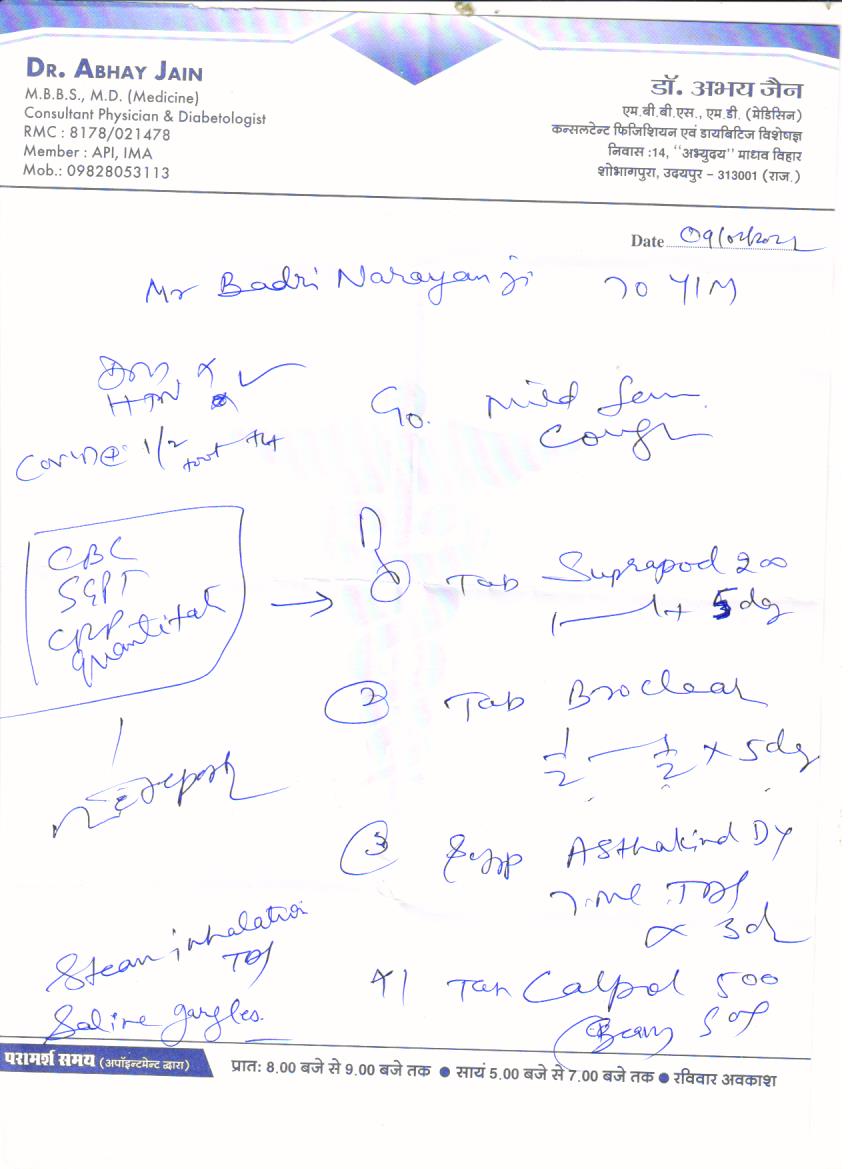 DR. ABHAY JAIN
M.B.B.S., M.D. (Medicine)
Consultant Physician & Diabetologist
RMC : 8178/021478
Member : API, IMA
Mob.: 09828053113
डॉ. अभय जैन
एम.बी.बी.एस., एम.डी. (मेडिसिन)
कन्सलटेन्ट फिजिशियन एवं डायबिटिज विशेषज्ञ
निवास :14, "अभ्युदय" माधव विहार
शोभागपुरा, उदयपुर – 313001 (राज.)
Date 09/02/2022
Mr Badri Narayan ji 70 Y/M
DM x
HTN
C/o. Mild fever
Cough
1/2
CBC
SGPT
CRP
quantitat
Tab Suprapod 200
1 1 x 5 dy
2 Tab Broclear
1/2 1/2 x 5 dy
report
3 Syp Asthakind DX
7.5 ml TDS
x 3 d
Steam inhalation
TDS
Saline gargles.
4) Tab Calpol 500
SOS
परामर्श समय (अपॉइन्टमेन्ट द्वारा)
प्रात: 8.00 बजे से 9.00 बजे तक ● सायं 5.00 बजे से 7.00 बजे तक ● रविवार अवकाश